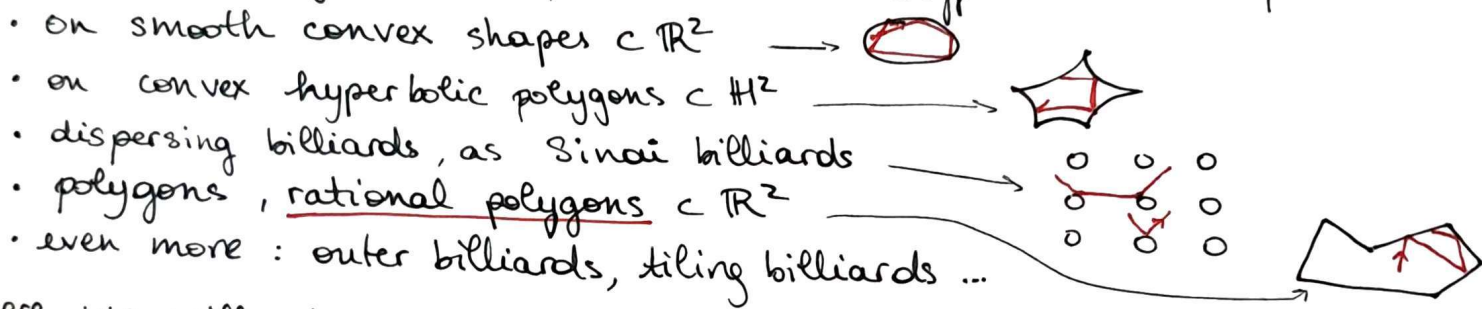 • on smooth convex shapes ⊂ ℝ²
• on convex hyperbolic polygons ⊂ ℍ²
• dispersing billiards, as Sinai billiards
• polygons, rational polygons ⊂ ℝ²
• even more: outer billiards, tiling billiards ...